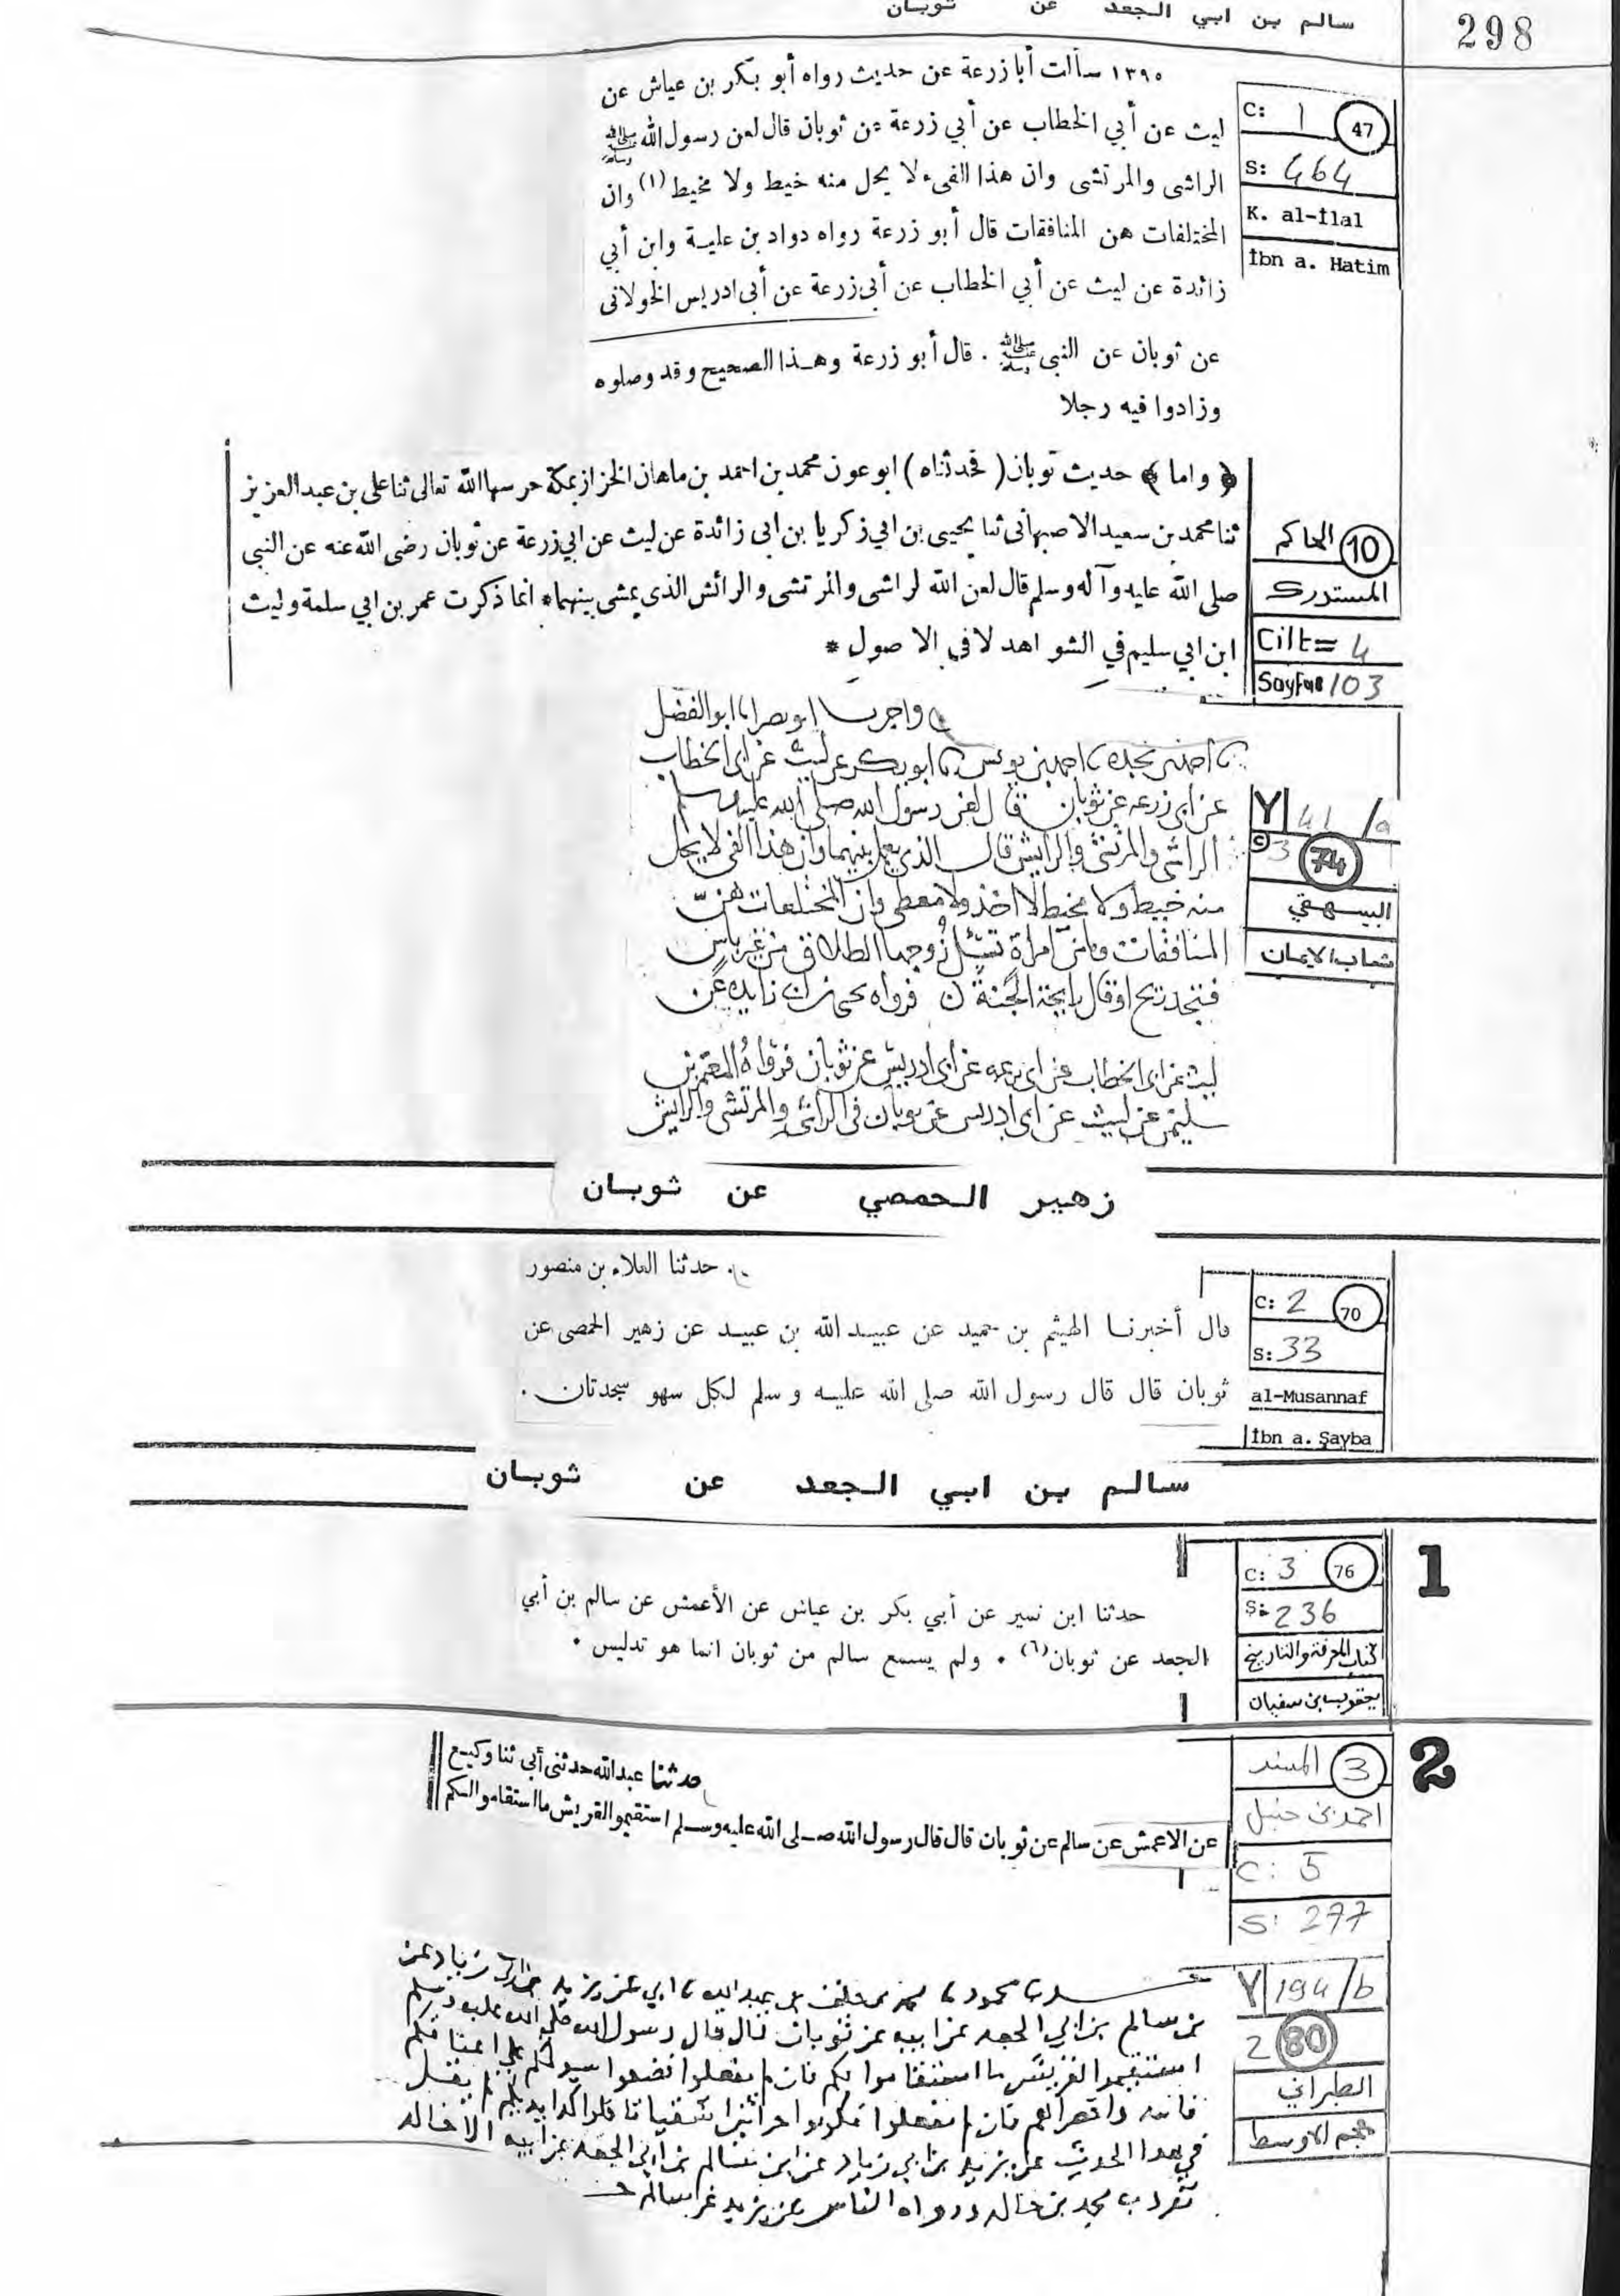 298
سالم بن ابي الجعد عن ثوبان
١٣٩٥ سألت أبا زرعة عن حديث رواه أبو بكر بن عياش عن
ليث عن أبي الخطاب عن أبي زرعة عن ثوبان قال لعن رسول الله ﷺ
الراشى والمرتشى وان هذا الفىء لا يحل منه خيط ولا مخيط (١) وان
المختلفات هن المنافقات قال أبو زرعة رواه دواد بن علية وابن أبي
زائدة عن ليث عن أبي الخطاب عن أبى زرعة عن أبى ادريس الخولانى
عن ثوبان عن النبى ﷺ . قال أبو زرعة وهذا الصحيح وقد وصلوه
وزادوا فيه رجلا
C: 1 47
S: 464
K. al-İlal
İbn a. Hatim
﴿ واما ﴾ حديث ثوبان ( فحدثناه ) ابو عون محمد بن احمد بن ماهان الخزاز بمكة حرسها الله تعالى ثنا على بن عبد العزيز
ثنا محمد بن سعيد الاصبهانى ثنا يحيى بن ابي زكريا بن ابى زائدة عن ليث عن ابي زرعة عن ثوبان رضى الله عنه عن النبى
صلى الله عليه وآله وسلم قال لعن الله لراشى والمرتشى والرائش الذى يمشى بينهما* انما ذكرت عمر بن ابي سلمة وليث
ابن ابي سليم في الشواهد لا في الاصول *
10 الحاكم
المستدرك
Cilt= 4
Sayfa= 103
واخبرنا ابو نصر انا ابو الفضل
احمد بن نجدة احمد بن يونس ابو بكر عن ليث عن ابى الخطاب
عن ابي زرعه عن ثوبان قال لعن رسول الله صلى الله عليه وسلم
الراشى والمرتشى والرايش قال الذي يعمل بينهما وان هذا الفى لا يحل
منه خيط ولا مخيط لا اخذ ولا معطى وان المختلعات هنّ
المنافقات وما من امراة تسئل زوجها الطلاق من غير باس
فتجد ريح او قال رايحة الجنة فرواه يحيى بن ابى زايده عن
ليث عن ابى الخطاب عن ابى زرعه عن ابى ادريس عن ثوبان فرواه المعتمر بن
سليمن عن ليث عن ابى ادريس عن ثوبان فى الراشى والمرتشى والرايش
Y 41 /a
C 3 74
البيهقي
شعاب الايمان
زهير الحمصي عن ثوبان
حدثنا العلاء بن منصور
قال أخبرنا الهيثم بن حميد عن عبيد الله بن عبيد عن زهير الحمصى عن
ثوبان قال قال رسول الله صلى الله عليه و سلم لكل سهو سجدتان .
C: 2 70
S: 33
al-Musannaf
İbn a. Şayba
سالم بن ابي الجعد عن ثوبان
1
حدثنا ابن نمير عن أبي بكر بن عياش عن الأعمش عن سالم بن أبي
الجعد عن ثوبان(٦) . ولم يسمع سالم من ثوبان انما هو تدليس .
C: 3 76
S: 236
كتاب المعرفة والتاريخ
يعقوب بن سفيان
2
حدثنا عبد الله حدثنى أبى ثنا وكيع
عن الاعمش عن سالم عن ثوبان قال قال رسول الله صلى الله عليه وسلم استقيموا لقريش ما استقاموا لكم
3 المسند
احمد بن حنبل
C: 5
S: 277
محمود محمد بن عبد الله ابي عن يزيد بن ابى زياد عن
بن سالم بن ابي الجعد عن ابيه عن ثوبان قال قال رسول الله صلى الله عليه وسلم
استقيموا لقريش ما استقاموا لكم فان لم يفعلوا فضعوا سيوفكم على اعناقكم
فان لم تفعلوا فكونوا حراثين اشقيا تاكلوا كد ايديكم لم يقل
في هذا الحديث عن يزيد بن ابي زياد عن ابن سالم بن ابي الجعد عن ابيه الا خالد
تفرد به محمد بن خالد ورواه الناس عن يزيد عن سالم
Y 194/b
2 80
الطبراني
معجم الاوسط